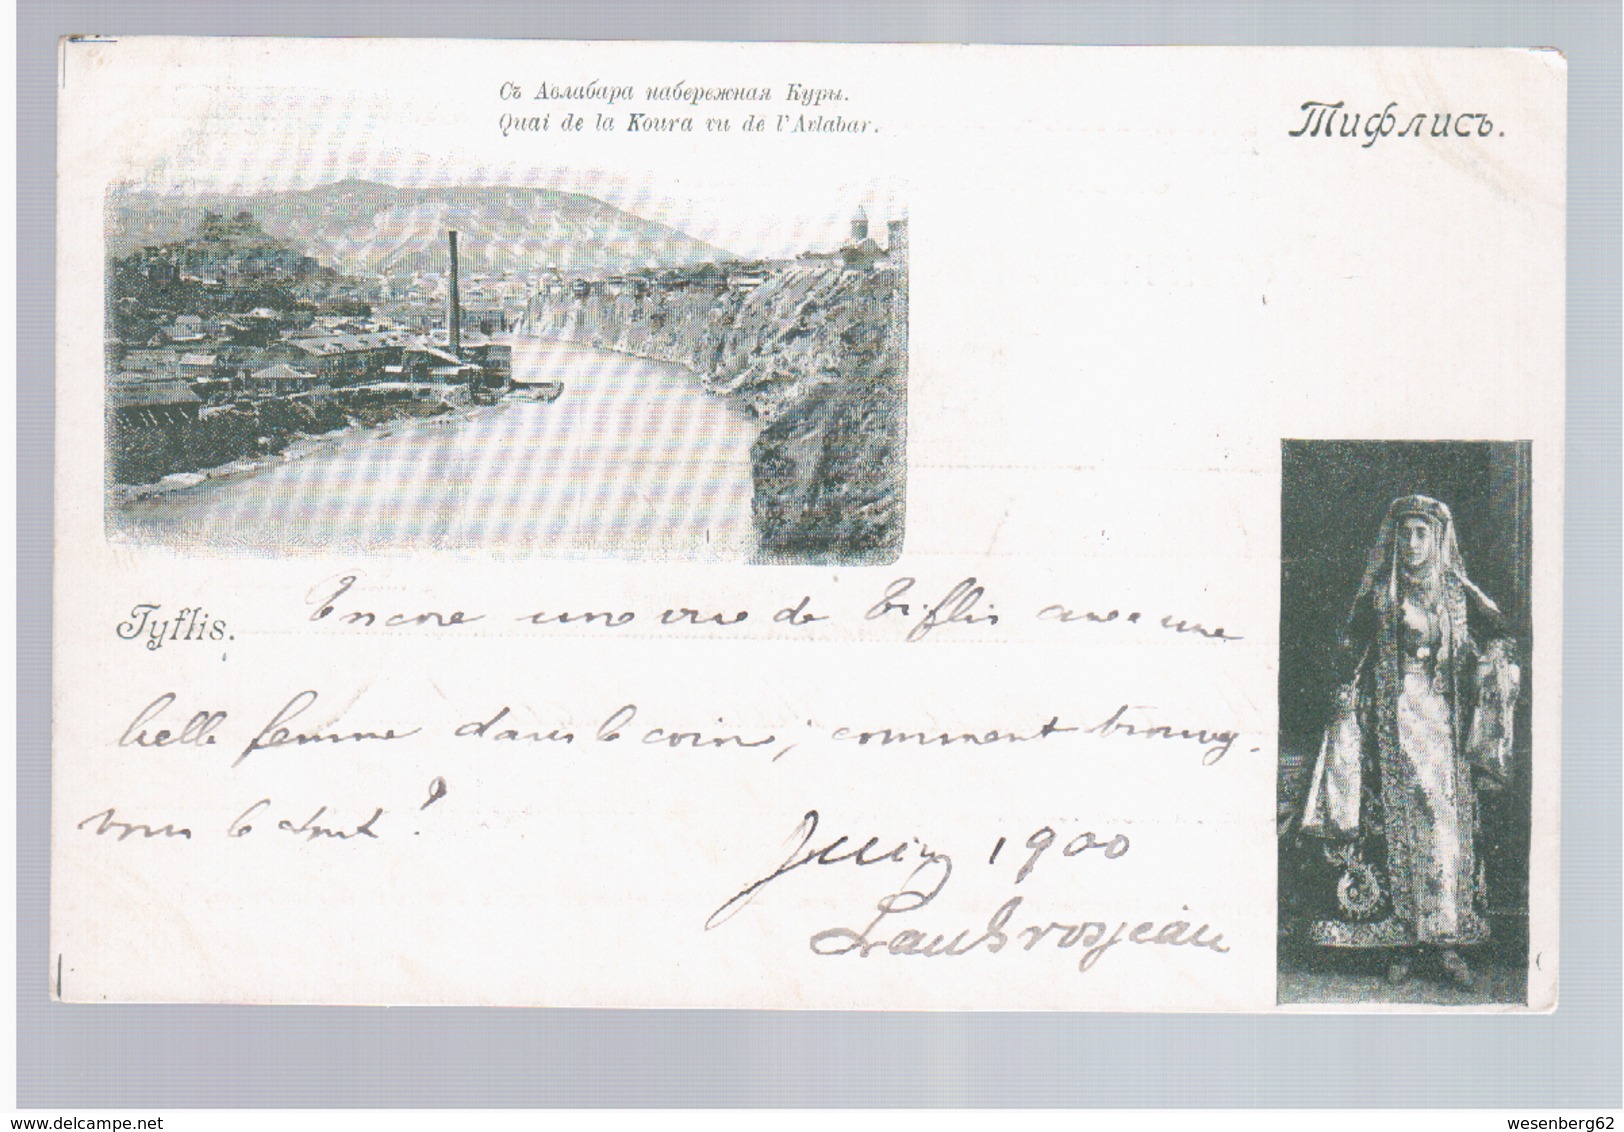 Съ Авлабара набережная Куры.
Quai de la Koura vu de l'Avlabar.
Тифлисъ.
Tyflis.
Encore une vue de Tiflis avec une
belle femme dans le coin; comment trouvez-
vous le tout?
Juin 1900
wesenberg62